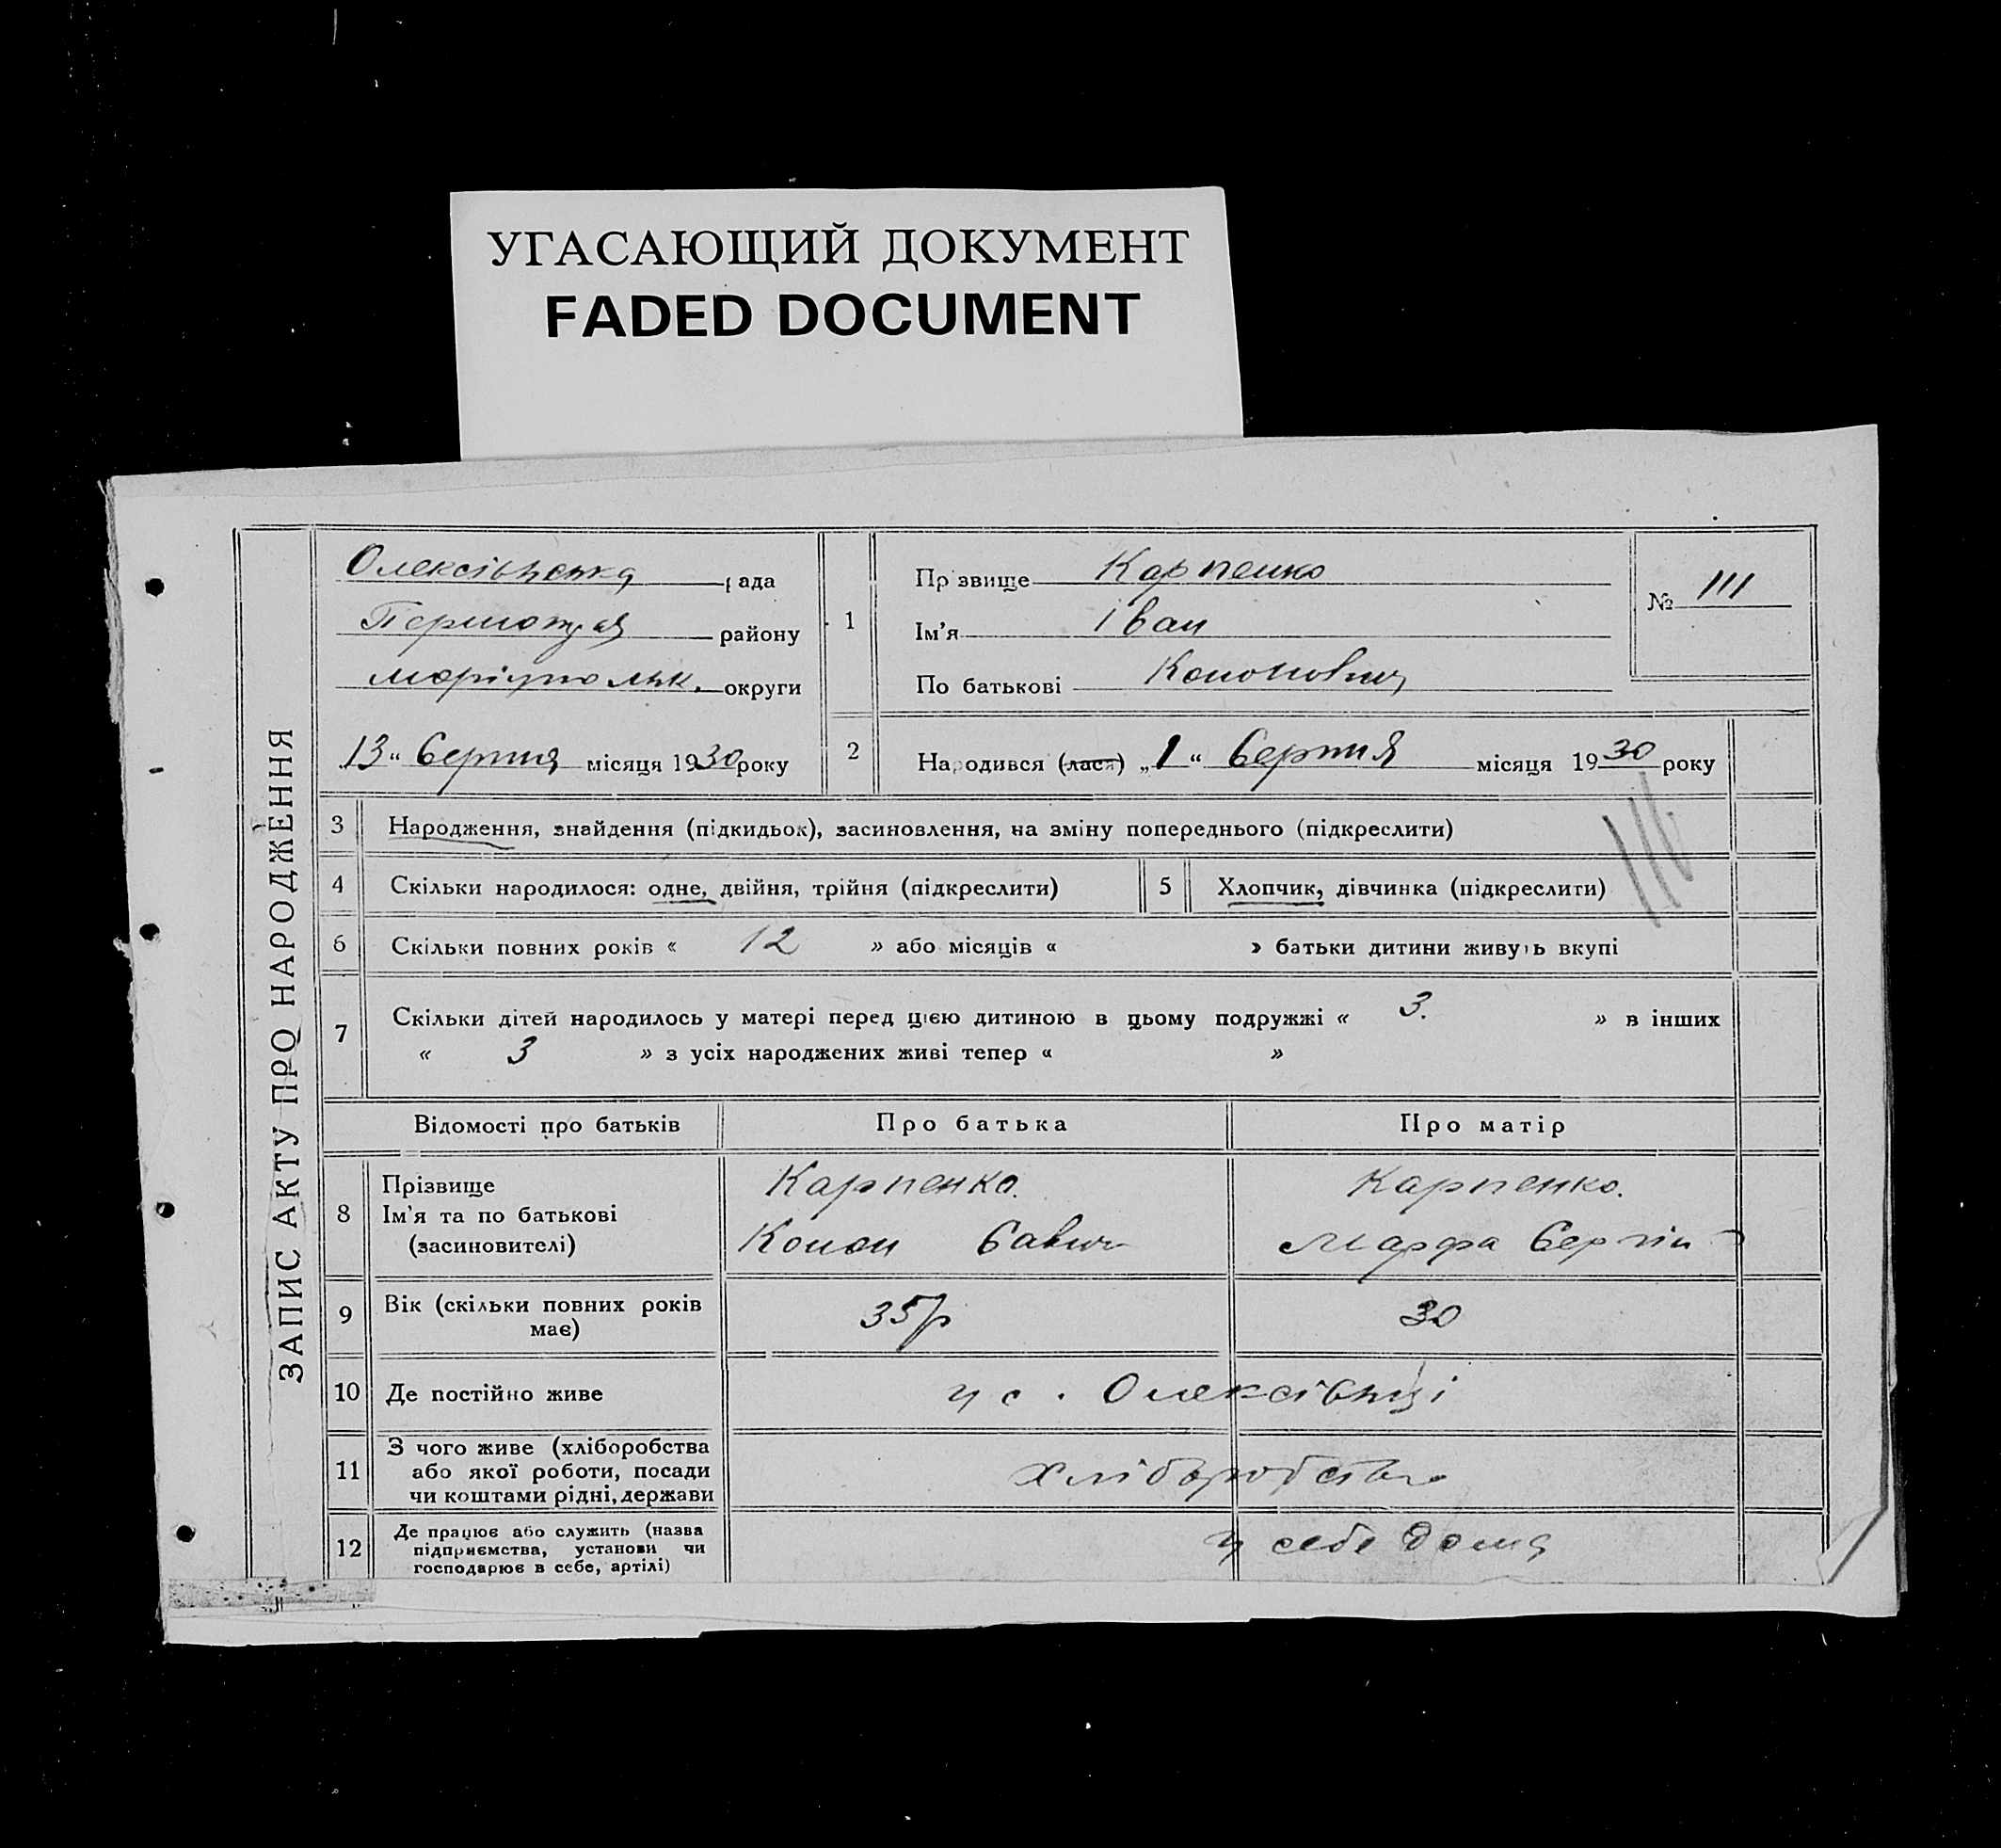 УГАСАЮЩИЙ ДОКУМЕНТ
FADED DOCUMENT
ЗАПИС АКТУ ПРО НАРОДЖЕННЯ
Олексіївська рада
району
маріупольк. округи
13 “ Серпня місяця 1930 року
1
Прізвище Карпенко
Ім'я Іван
По батькові Кононович
№ 111
2
Народився (лася) „1 “ Серпня місяця 1930 року
3 Народження, знайдення (підкидьок), засиновлення, на зміну попереднього (підкреслити)
4 Скільки народилося: одне, двійня, трійня (підкреслити) 5 Хлопчик, дівчинка (підкреслити)
6 Скільки повних років « 12 » або місяців « » батьки дитини живуть вкупі
7 Скільки дітей народилось у матері перед цією дитиною в цьому подружжі « 3. » в інших
« 3 » з усіх народжених живі тепер « »
Відомості про батьків Про батька Про матір
8 Прізвище Карпенко. Карпенко.
Ім'я та по батькові Конон Савич Марфа Сергіи
(засиновителі)
9 Вік (скільки повних років має) 35р 30
10 Де постійно живе у с. Олексіївці
11 З чого живе (хліборобства
або якої роботи, посади хліборобство
чи коштами рідні, держави
12 Де працює або служить (назва
підприємства, установи чи у себе дома
господарює в себе, артілі)